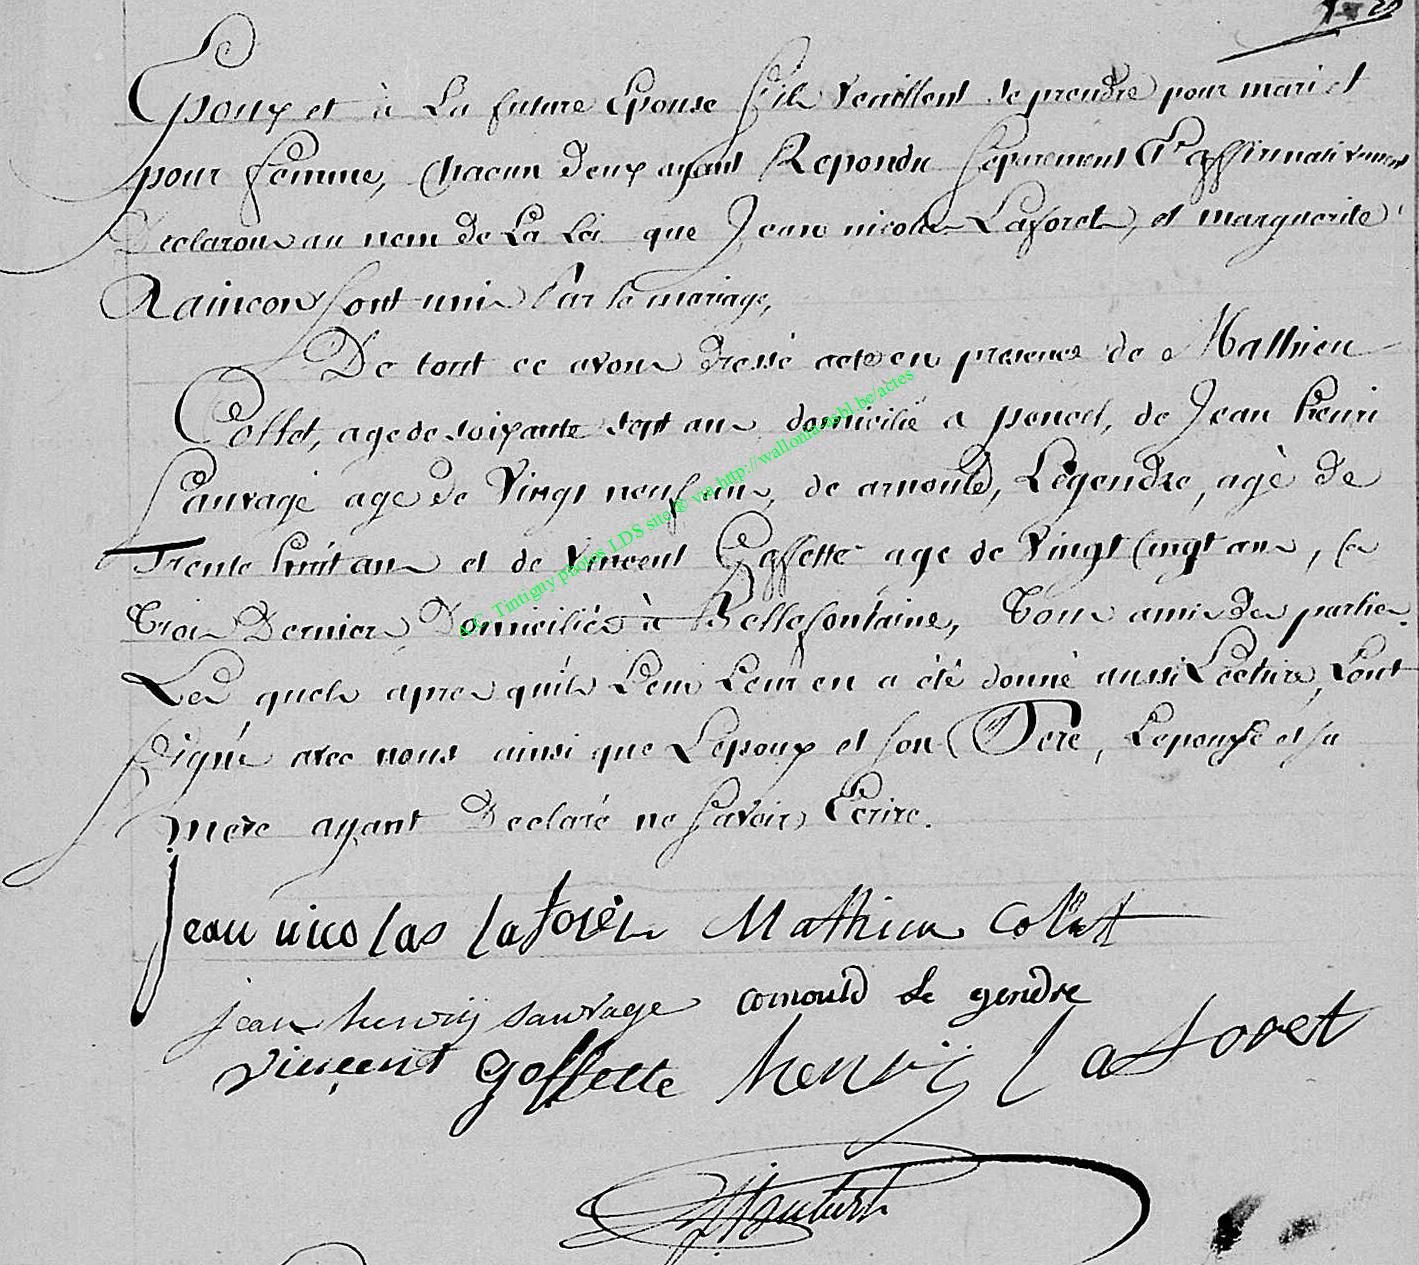 Epoux et à La future Epouse S'ils veuillent se prendre pour mari et
pour femme, Chacun deux ayant Repondu Séparement & affirmativement
Declarons au nom de La Loi que Jean nicolas Laforet, et marguerite
Raincon Sont unis Par le mariage,
De tout ce avons dressé acte en presence de Mathieu
Collet, age de soixante sept ans domicilié a poncel, de Jean henri
Sauvage age de Vingt neuf ans, de arnould, Legendre, agé de
Trente huit ans et de Vincent Goffette age de Vingt Cinqt ans, les
Trois Derniers Domiciliés à Bellefontaine, Tous amis des parties.
Les quels apres quils Leur en a été donné aussi Lecture, Lont
Signé avec nous ainsi que Lepoux et Son Pere, Lepouse et sa
mere ayant Declaré ne Savoir Ecrire.
jean nicolas laforet Mathieu Collet
jean henrij sauvage arnould le gendre
vincent goffette henrij laforet
A.C. Tintigny photos LDS site ® via http://wallonia-asbl.be/actes